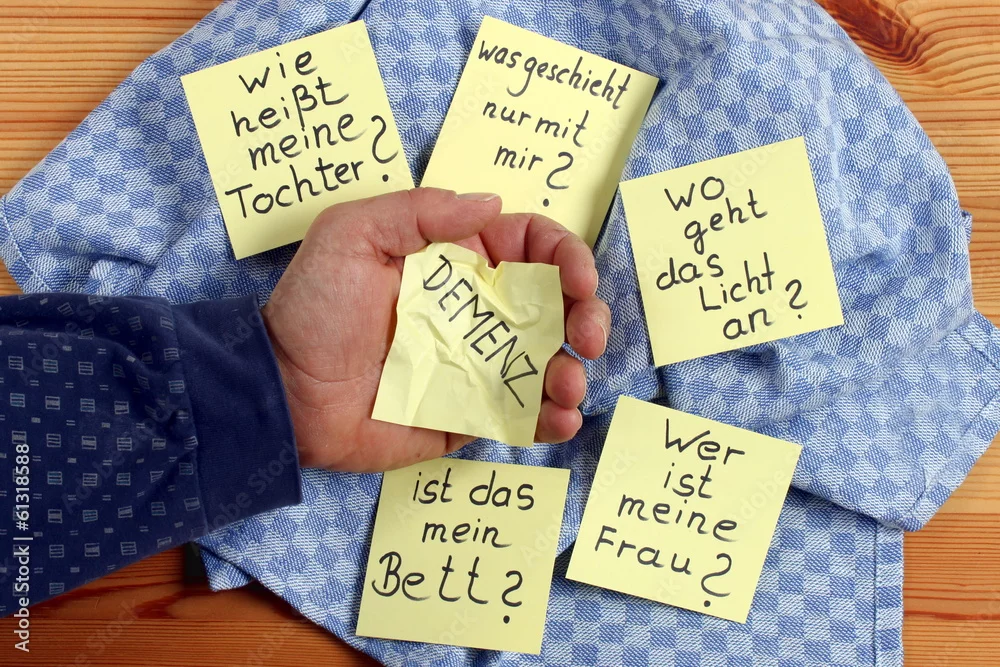 wie
heißt
meine
Tochter?
was geschieht
nur mit
mir?
wo
geht
das
Licht
an?
DEMENZ
ist das
mein
Bett?
Wer
ist
meine
Frau?
61318588
Adobe Stock